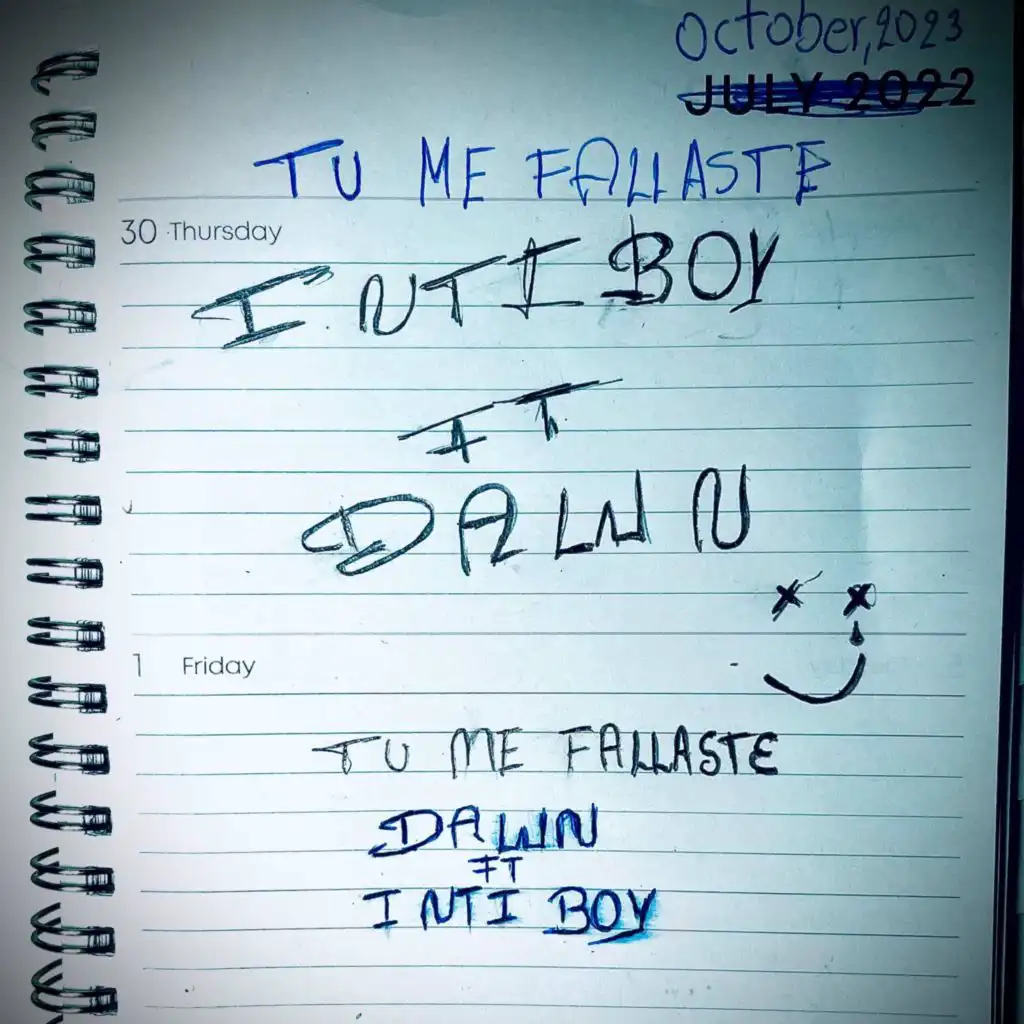 October, 2023
JULY 2022
TU ME FALLASTE
30 Thursday
INTI BOY
FT
DAWN
1 Friday
TU ME FALLASTE
DAWN
FT
INTI BOY